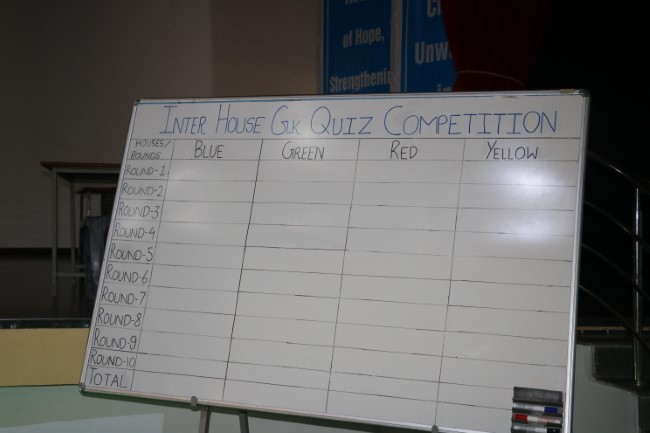 of Hope,
Strengthening
Unw
INTER HOUSE G.K QUIZ COMPETITION
HOUSES/ BLUE GREEN RED YELLOW
ROUNDS
ROUND-1
ROUND-2
ROUND-3
ROUND-4
ROUND-5
ROUND-6
ROUND-7
ROUND-8
ROUND-9
ROUND-10
TOTAL